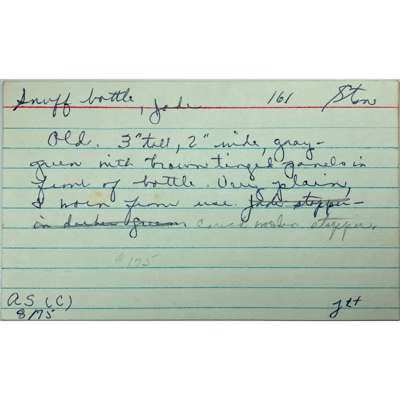 Snuff bottle, Jade 161 Ston
Old. 3" tall, 2" wide, gray-
green with brown tinged panels in
front of bottle. Very plain,
& worn from use. Jade stopper
in darker green Carved wooden stopper.
$175
AS (C)
8/75